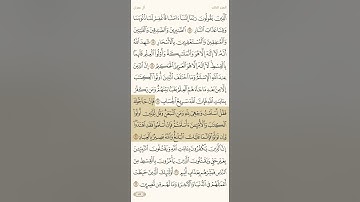 ٱلَّذِينَ يَقُولُونَ رَبَّنَآ إِنَّنَآ ءَامَنَّا فَٱغْفِرْ لَنَا ذُنُوبَنَا
وَقِنَا عَذَابَ ٱلنَّارِ ٱلصَّٰبِرِينَ وَٱلصَّٰدِقِينَ وَٱلْقَٰنِتِينَ
وَٱلْمُنفِقِينَ وَٱلْمُسْتَغْفِرِينَ بِٱلْأَسْحَارِ شَهِدَ ٱللَّهُ
أَنَّهُۥ لَآ إِلَٰهَ إِلَّا هُوَ وَٱلْمَلَٰٓئِكَةُ وَأُو۟لُوا۟ ٱلْعِلْمِ قَآئِمَۢا
بِٱلْقِسْطِ لَآ إِلَٰهَ إِلَّا هُوَ ٱلْعَزِيزُ ٱلْحَكِيمُ إِنَّ ٱلدِّينَ
عِندَ ٱللَّهِ ٱلْإِسْلَٰمُ وَمَا ٱخْتَلَفَ ٱلَّذِينَ أُوتُوا۟
ٱلْكِتَٰبَ إِلَّا مِنۢ بَعْدِ مَا جَآءَهُمُ ٱلْعِلْمُ بَغْيَۢا بَيْنَهُمْ وَمَن يَكْفُرْ
بِـَٔايَٰتِ ٱللَّهِ فَإِنَّ ٱللَّهَ سَرِيعُ ٱلْحِسَابِ فَإِنْ حَآجُّوكَ
فَقُلْ أَسْلَمْتُ وَجْهِىَ لِلَّهِ وَمَنِ ٱتَّبَعَنِ وَقُل لِّلَّذِينَ أُوتُوا۟
ٱلْكِتَٰبَ وَٱلْأُمِّيِّـۧنَ ءَأَسْلَمْتُمْ فَإِنْ أَسْلَمُوا۟ فَقَدِ ٱهْتَدَوا۟
وَّإِن تَوَلَّوْا۟ فَإِنَّمَا عَلَيْكَ ٱلْبَلَٰغُ وَٱللَّهُ بَصِيرٌۢ بِٱلْعِبَادِ
إِنَّ ٱلَّذِينَ يَكْفُرُونَ بِـَٔايَٰتِ ٱللَّهِ وَيَقْتُلُونَ ٱلنَّبِيِّـۧنَ
بِغَيْرِ حَقٍّ وَيَقْتُلُونَ ٱلَّذِينَ يَأْمُرُونَ بِٱلْقِسْطِ مِنَ
ٱلنَّاسِ فَبَشِّرْهُم بِعَذَابٍ أَلِيمٍ أُو۟لَٰٓئِكَ ٱلَّذِينَ حَبِطَتْ
أَعْمَٰلُهُمْ فِى ٱلدُّنْيَا وَٱلْءَاخِرَةِ وَمَا لَهُم مِّن نَّٰصِرِينَ